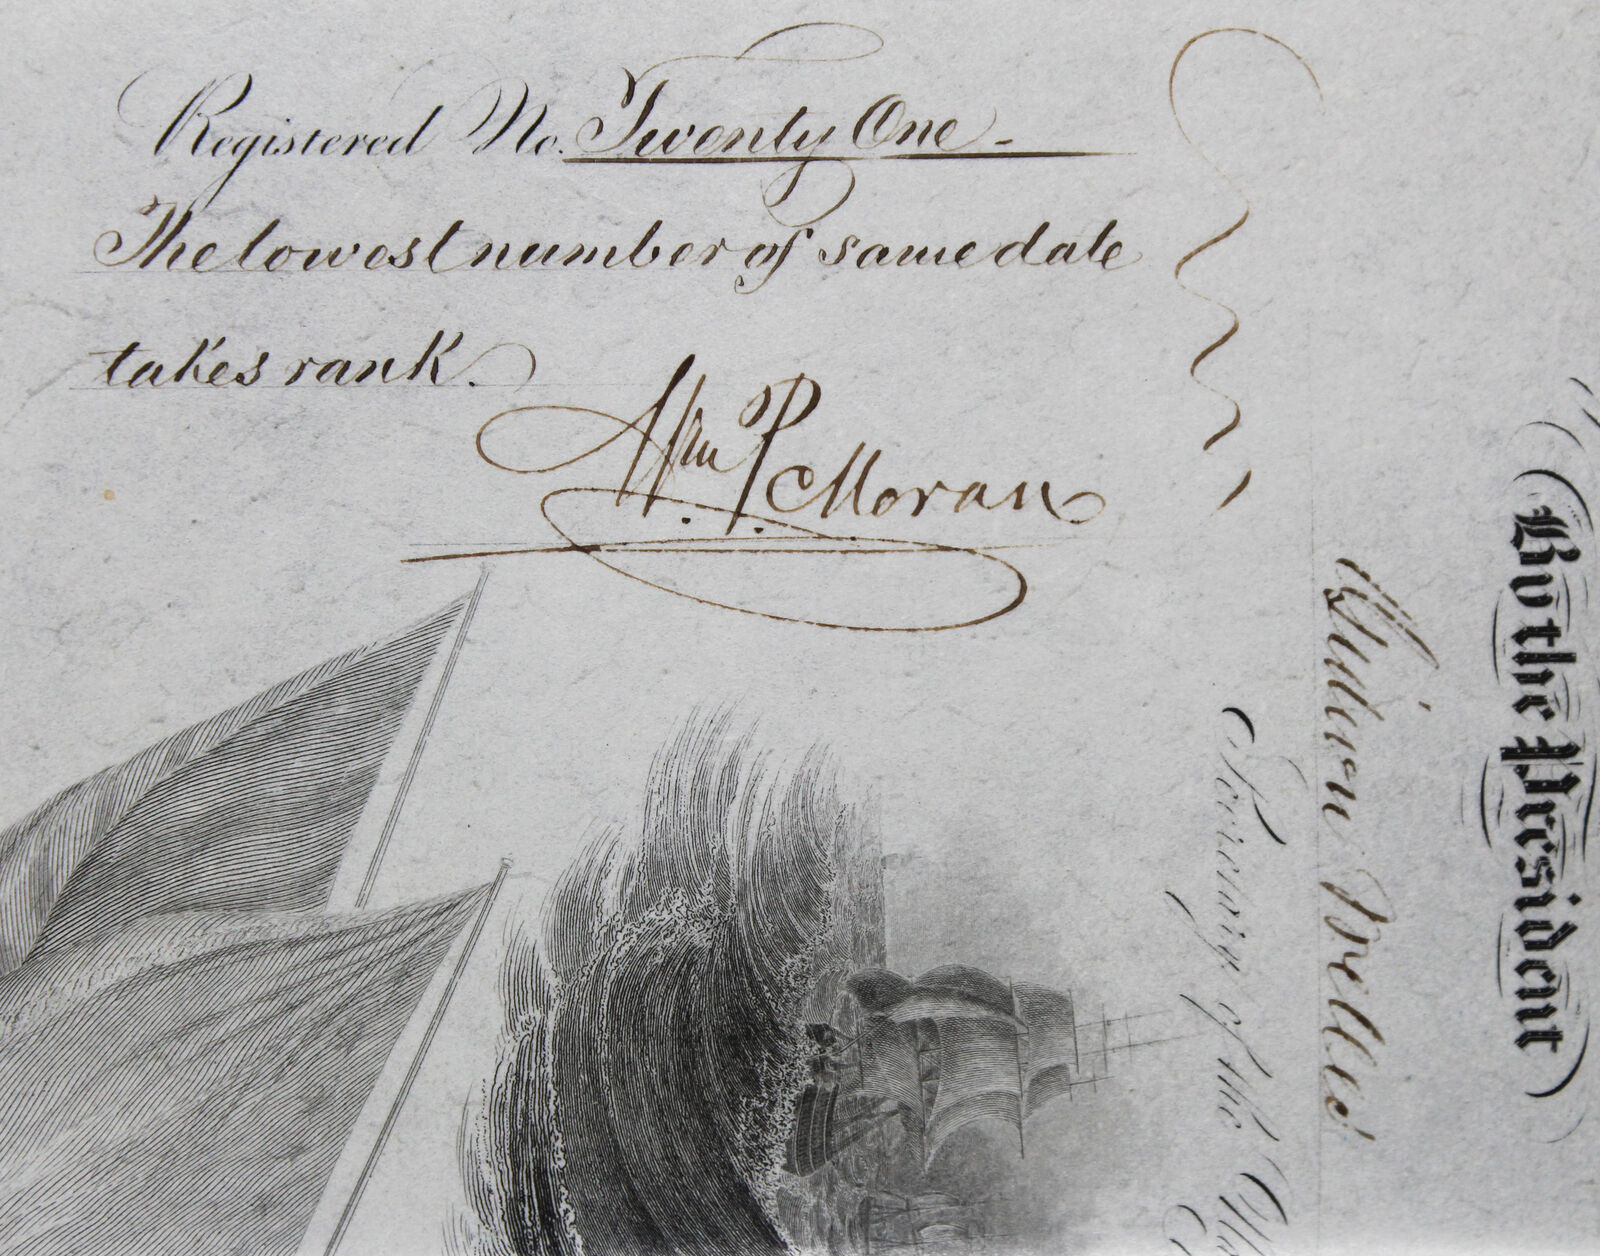 Registered No. Twenty One -
The lowest number of same date
takes rank.
Wm. P. Moran
By the President
Gideon Welles
Secretary of the